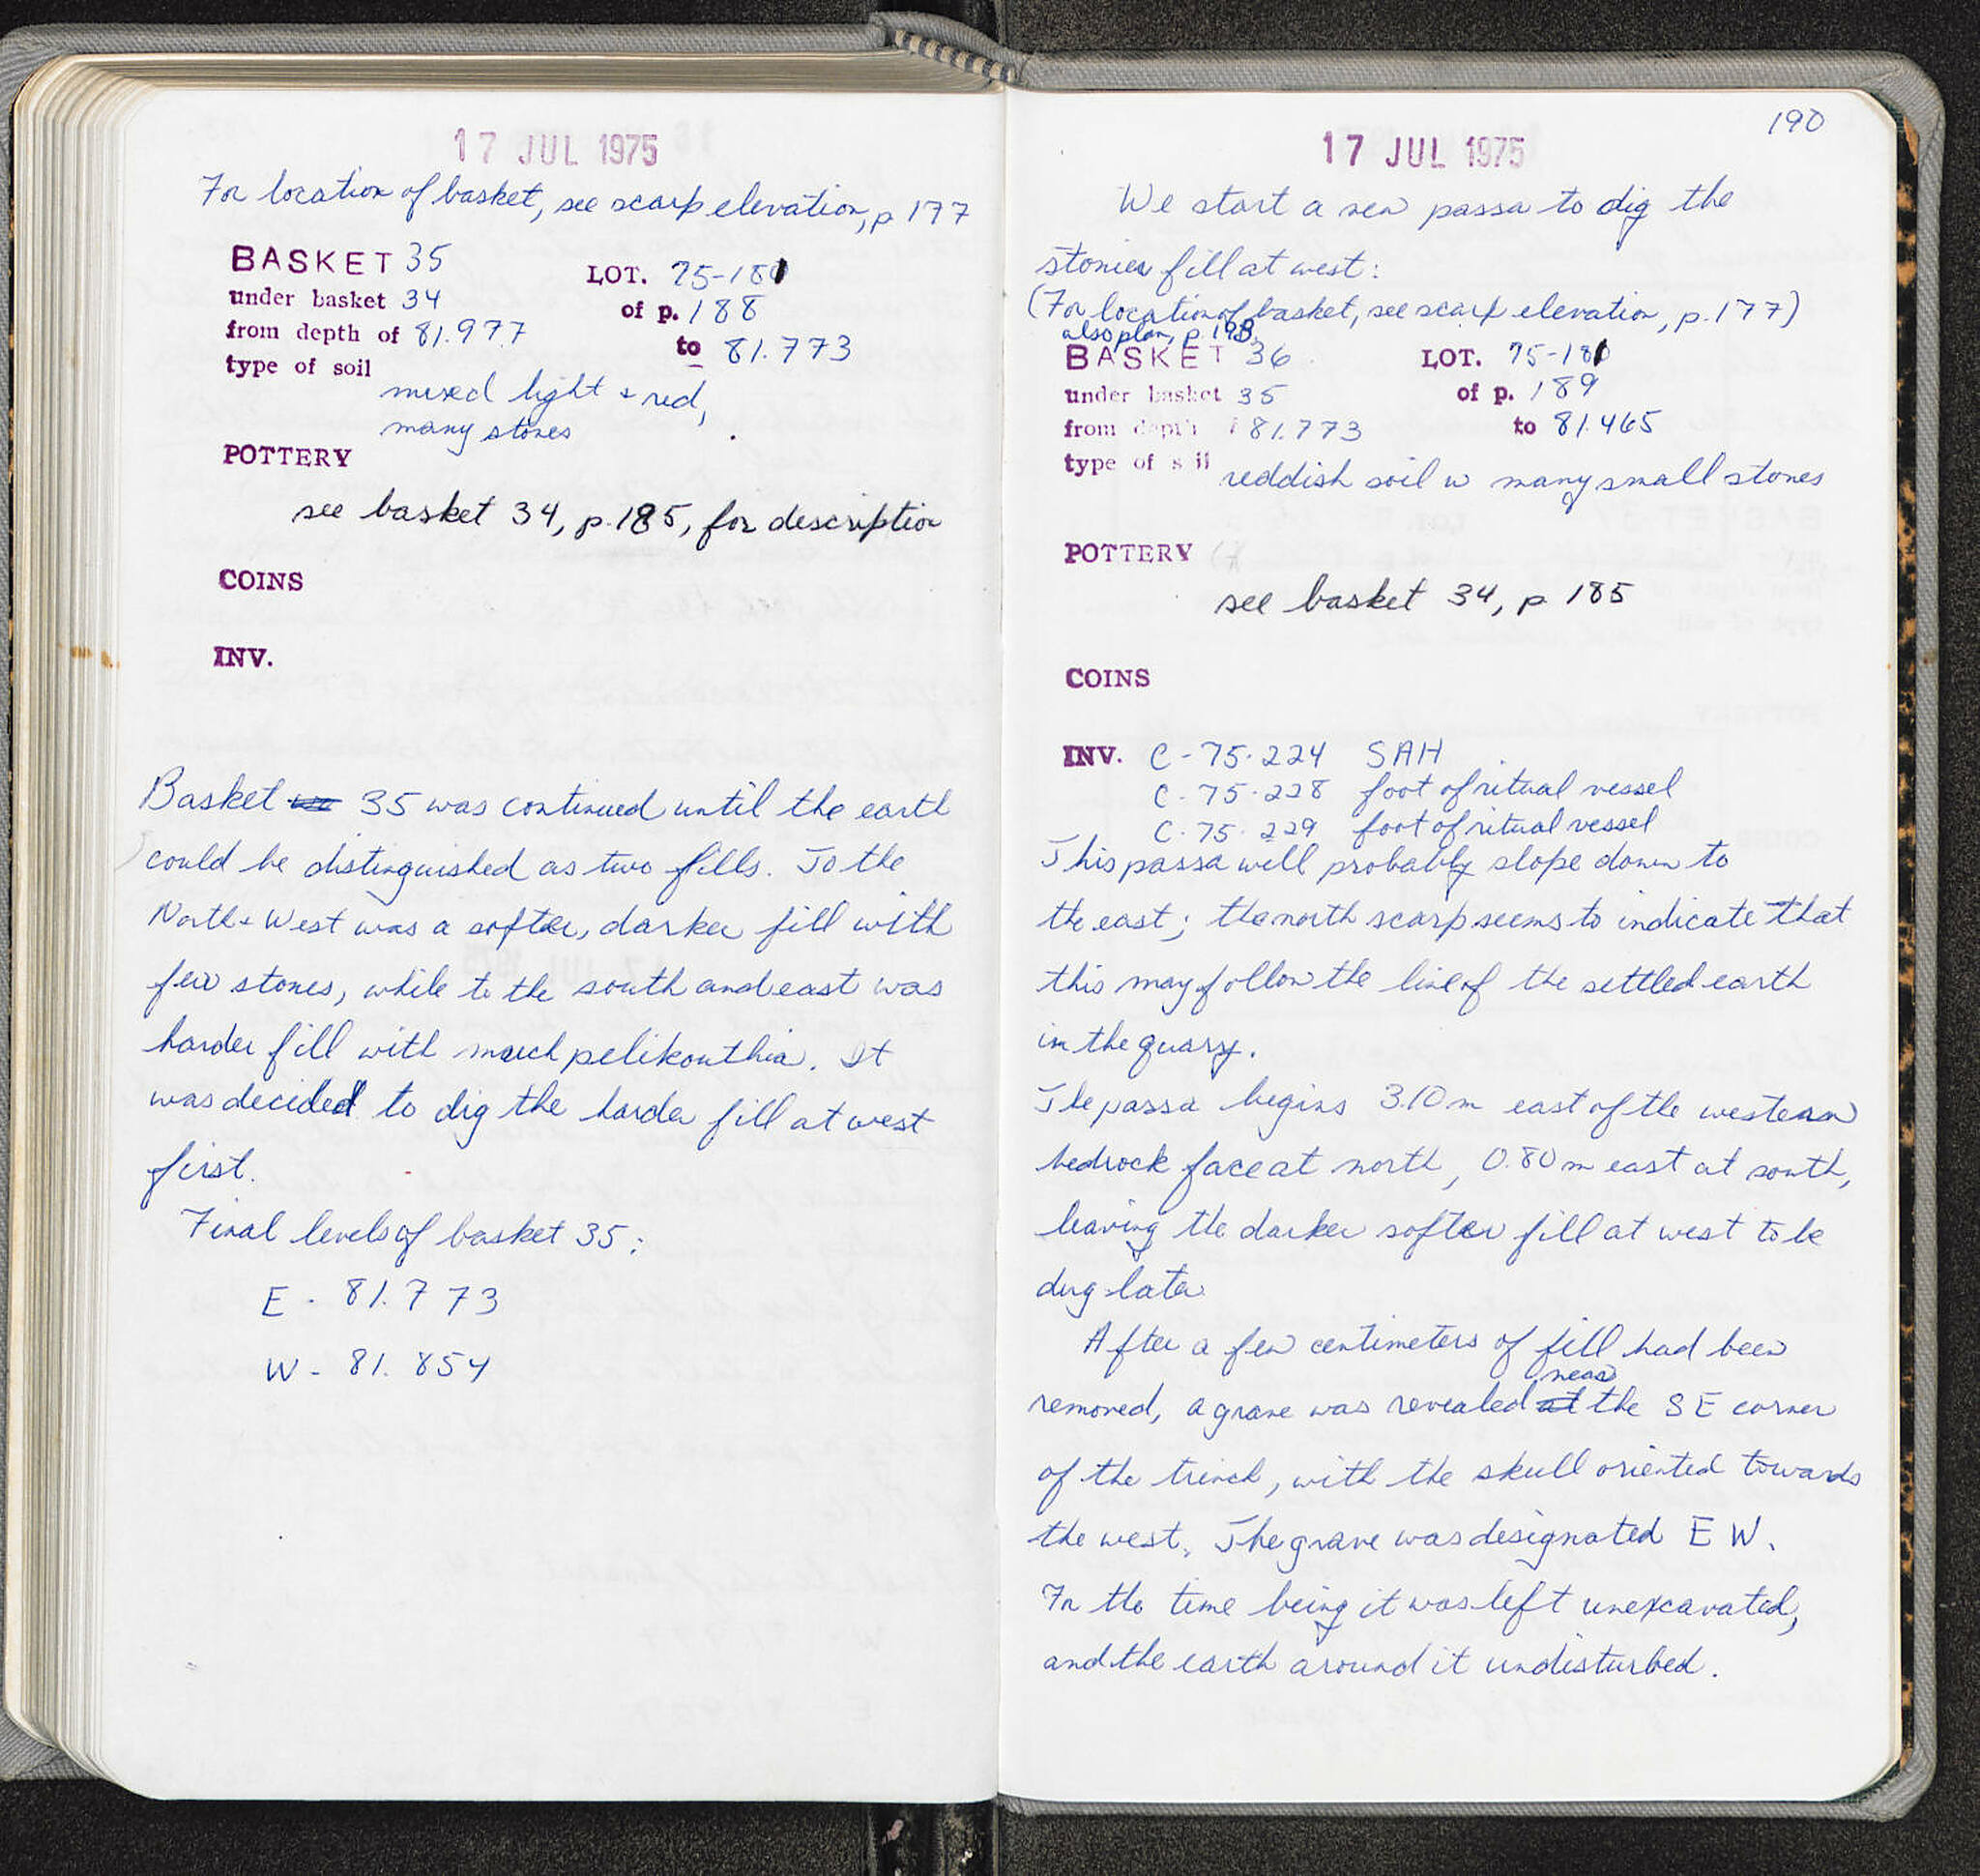 17 JUL 1975
For location of basket, see scarp elevation, p 177
BASKET 35 LOT. 75-181
under basket 34 of p. 188
from depth of 81.977 to 81.773
type of soil
mixed light + red,
many stones
POTTERY
see basket 34, p. 185, for description
COINS
INV.
Basket 35 was continued until the earth
could be distinguished as two fills. To the
North + West was a softer, darker fill with
few stones, while to the south and east was
harder fill with much pelikouthia. It
was decided to dig the harder fill at west
first.
Final levels of basket 35:
E - 81.773
W - 81.854
190
17 JUL 1975
We start a new passa to dig the
stonier fill at west:
(For location of basket, see scarp elevation, p. 177)
also plan, p. 193
BASKET 36 LOT. 75-181
under basket 35 of p. 189
from depth of 81.773 to 81.465
type of soil reddish soil w many small stones
POTTERY
see basket 34, p 185
COINS
INV. C-75-224 SAH
C-75-228 foot of ritual vessel
C-75-229 foot of ritual vessel
This passa will probably slope down to
the east; the north scarp seems to indicate that
this may follow the line of the settled earth
in the quarry.
The passa begins 3.10 m east of the western
bedrock face at north, 0.80 m east at south,
leaving the darker softer fill at west to be
dug later
After a few centimeters of fill had been
near
removed, a grave was revealed at the SE corner
of the trench, with the skull oriented towards
the west. The grave was designated E W.
For the time being it was left unexcavated,
and the earth around it undisturbed.